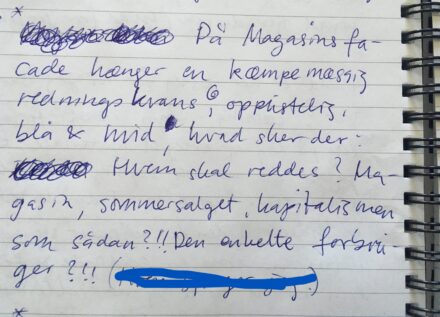 *
På Magasins fa-
cade hænger en kæmpemæssig
rednings krans, oppustelig,
blå & hvid, hvad sker der:
Hvem skal reddes? Ma-
gasin, sommersalget, kapitalismen
som sådan?!! Den enkelte forbru-
ger?!! (
*